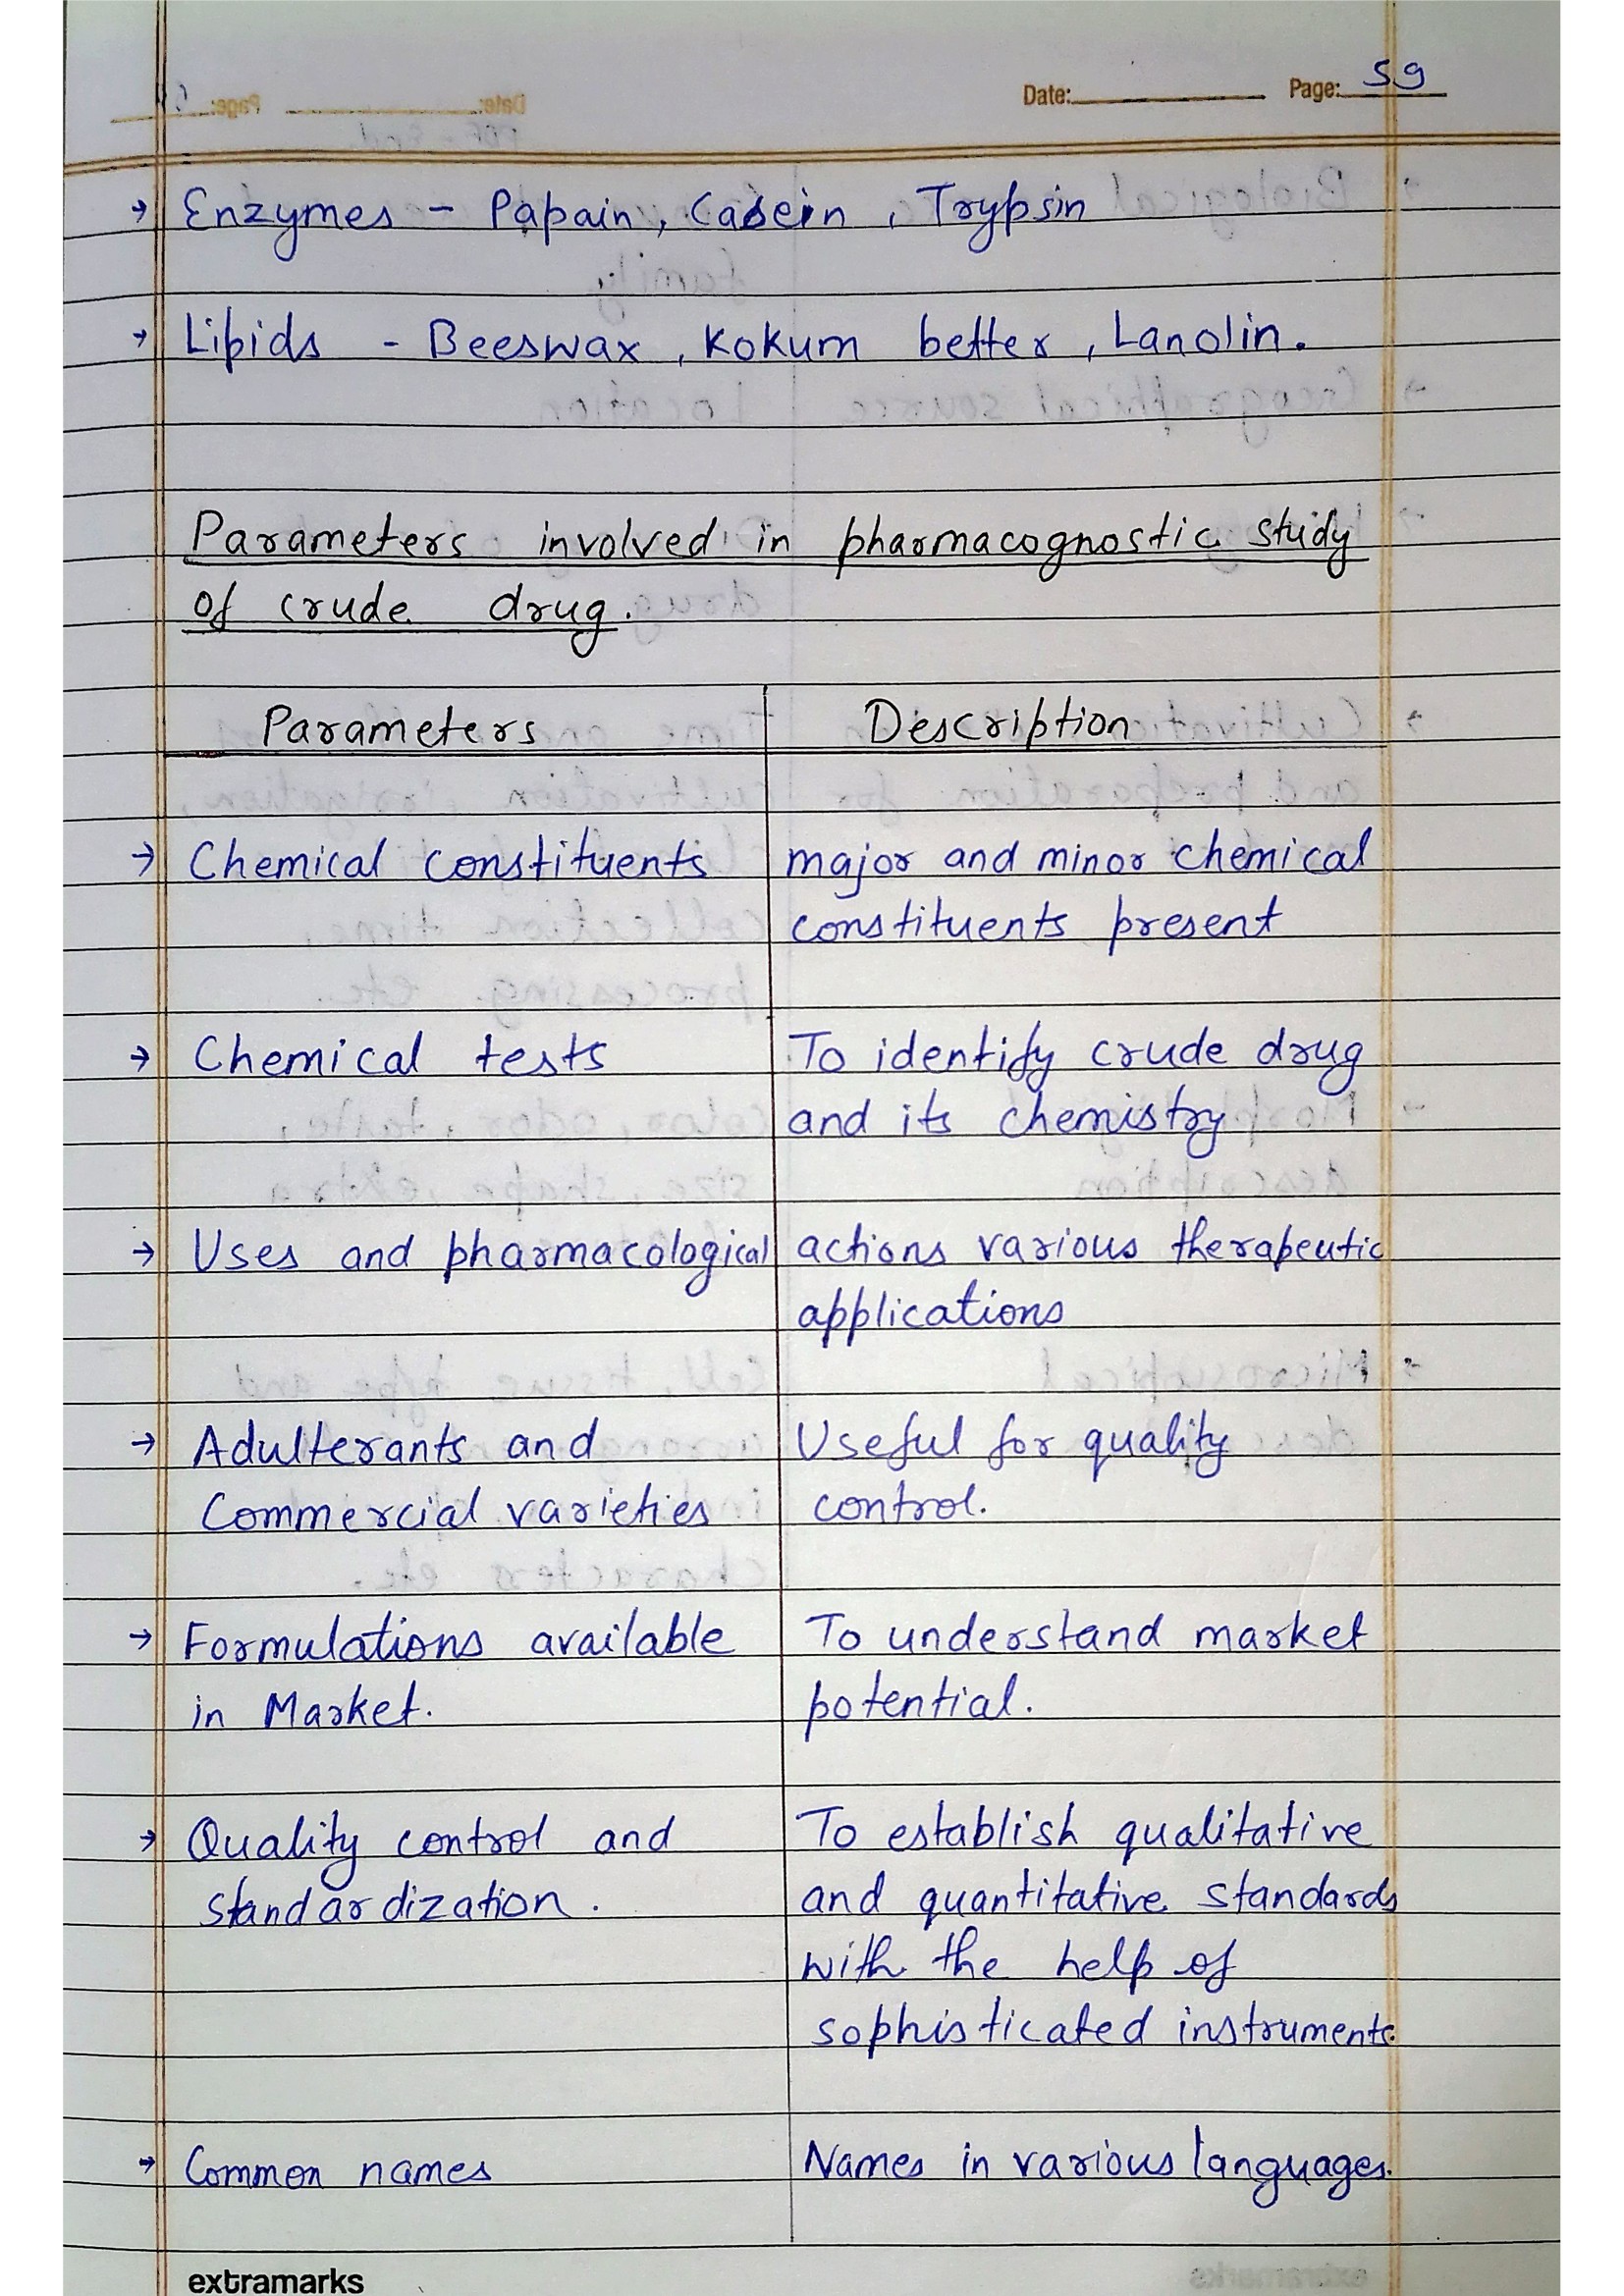 Date: Page: 59
→ Enzymes - Papain, Casein, Trypsin
→ Lipids - Beeswax, Kokum better, Lanolin.
Parameters involved in pharmacognostic study
of crude drug.
Parameters Description
→ Chemical constituents major and minor chemical
constituents present
→ Chemical tests To identify crude drug
and its chemistry
→ Uses and pharmacological actions various therapeutic
applications
→ Adulterants and Useful for quality
Commercial varieties control.
→ Formulations available To understand market
in Market. potential.
→ Quality control and To establish qualitative
standardization. and quantitative standards
with the help of
sophisticated instruments.
→ Common names Names in various languages.
extramarks